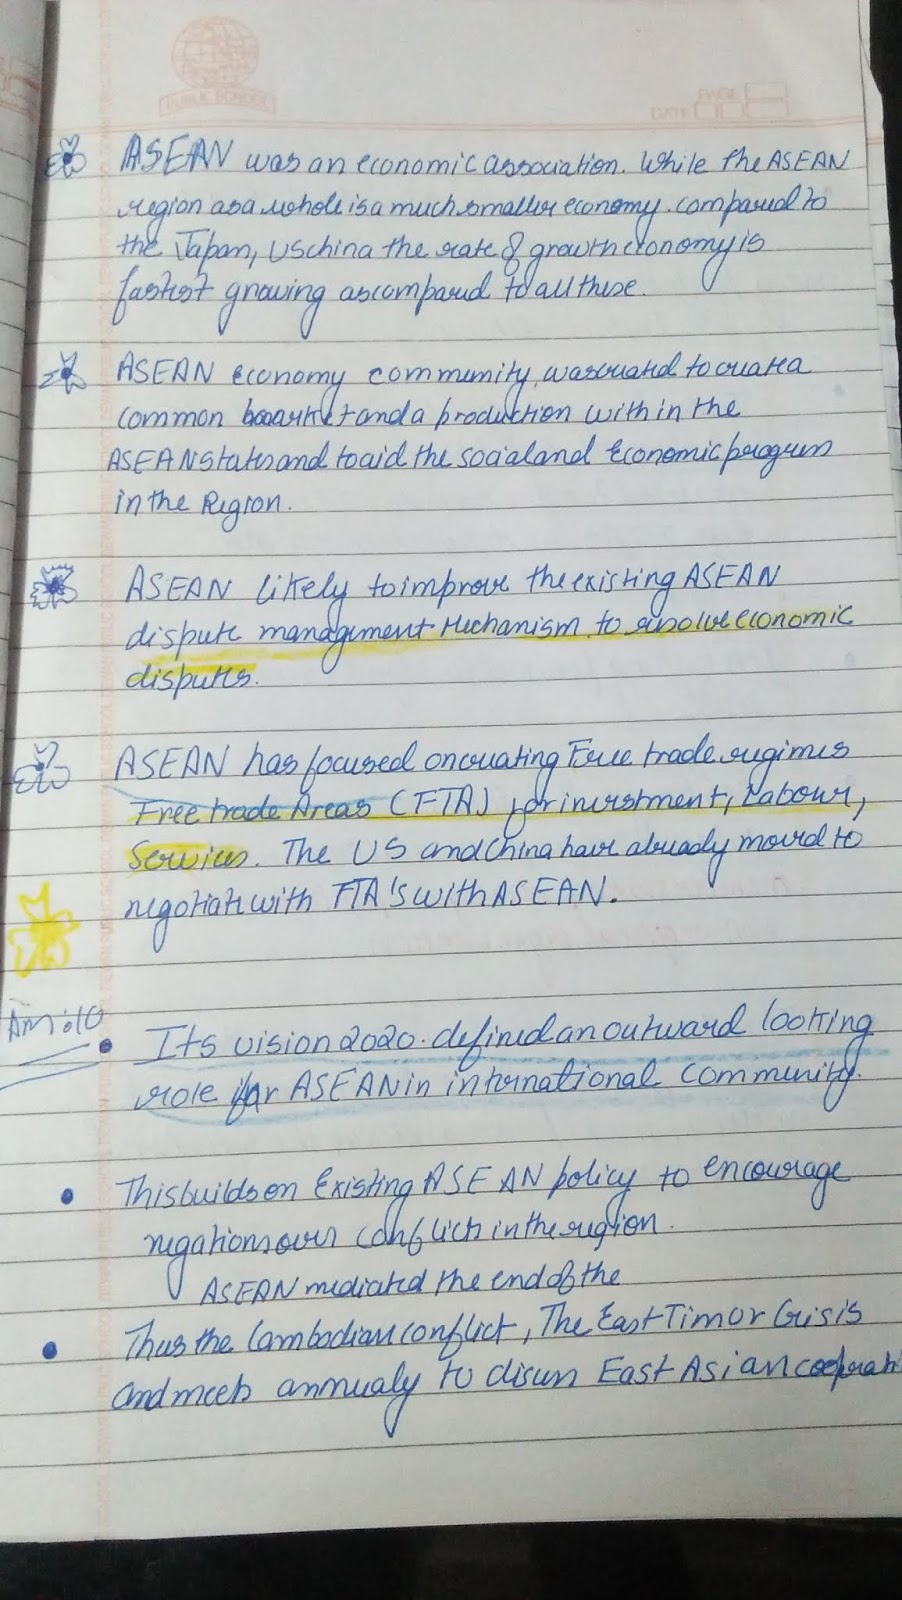 PUBLIC SCHOOL
PAGE
DATE
ASEAN was an economic association. While the ASEAN
region as a whole is a much smaller economy. compared to
the Japan, US china the rate of growth economy is
fastest growing as compared to all these.
ASEAN economy community, was created to create a
common market and a production within the
ASEAN states and to aid the social and Economic progress
in the Region.
ASEAN likely to improve the existing ASEAN
dispute management Mechanism to resolve economic
disputes.
ASEAN has focused on creating Free trade regimes
Free trade Areas (FTA) for investment, Labour,
Services. The US and China have already moved to
negotiate with FTA'S with ASEAN.
Its vision 2020. defined an outward looking
role for ASEAN in international community.
This builds on Existing ASEAN policy to encourage
negations over conflicts in the region.
ASEAN mediated the end of the
Thus the Cambodian conflict, The East Timor Crisis
and meets annualy to discuss East Asian cooperati